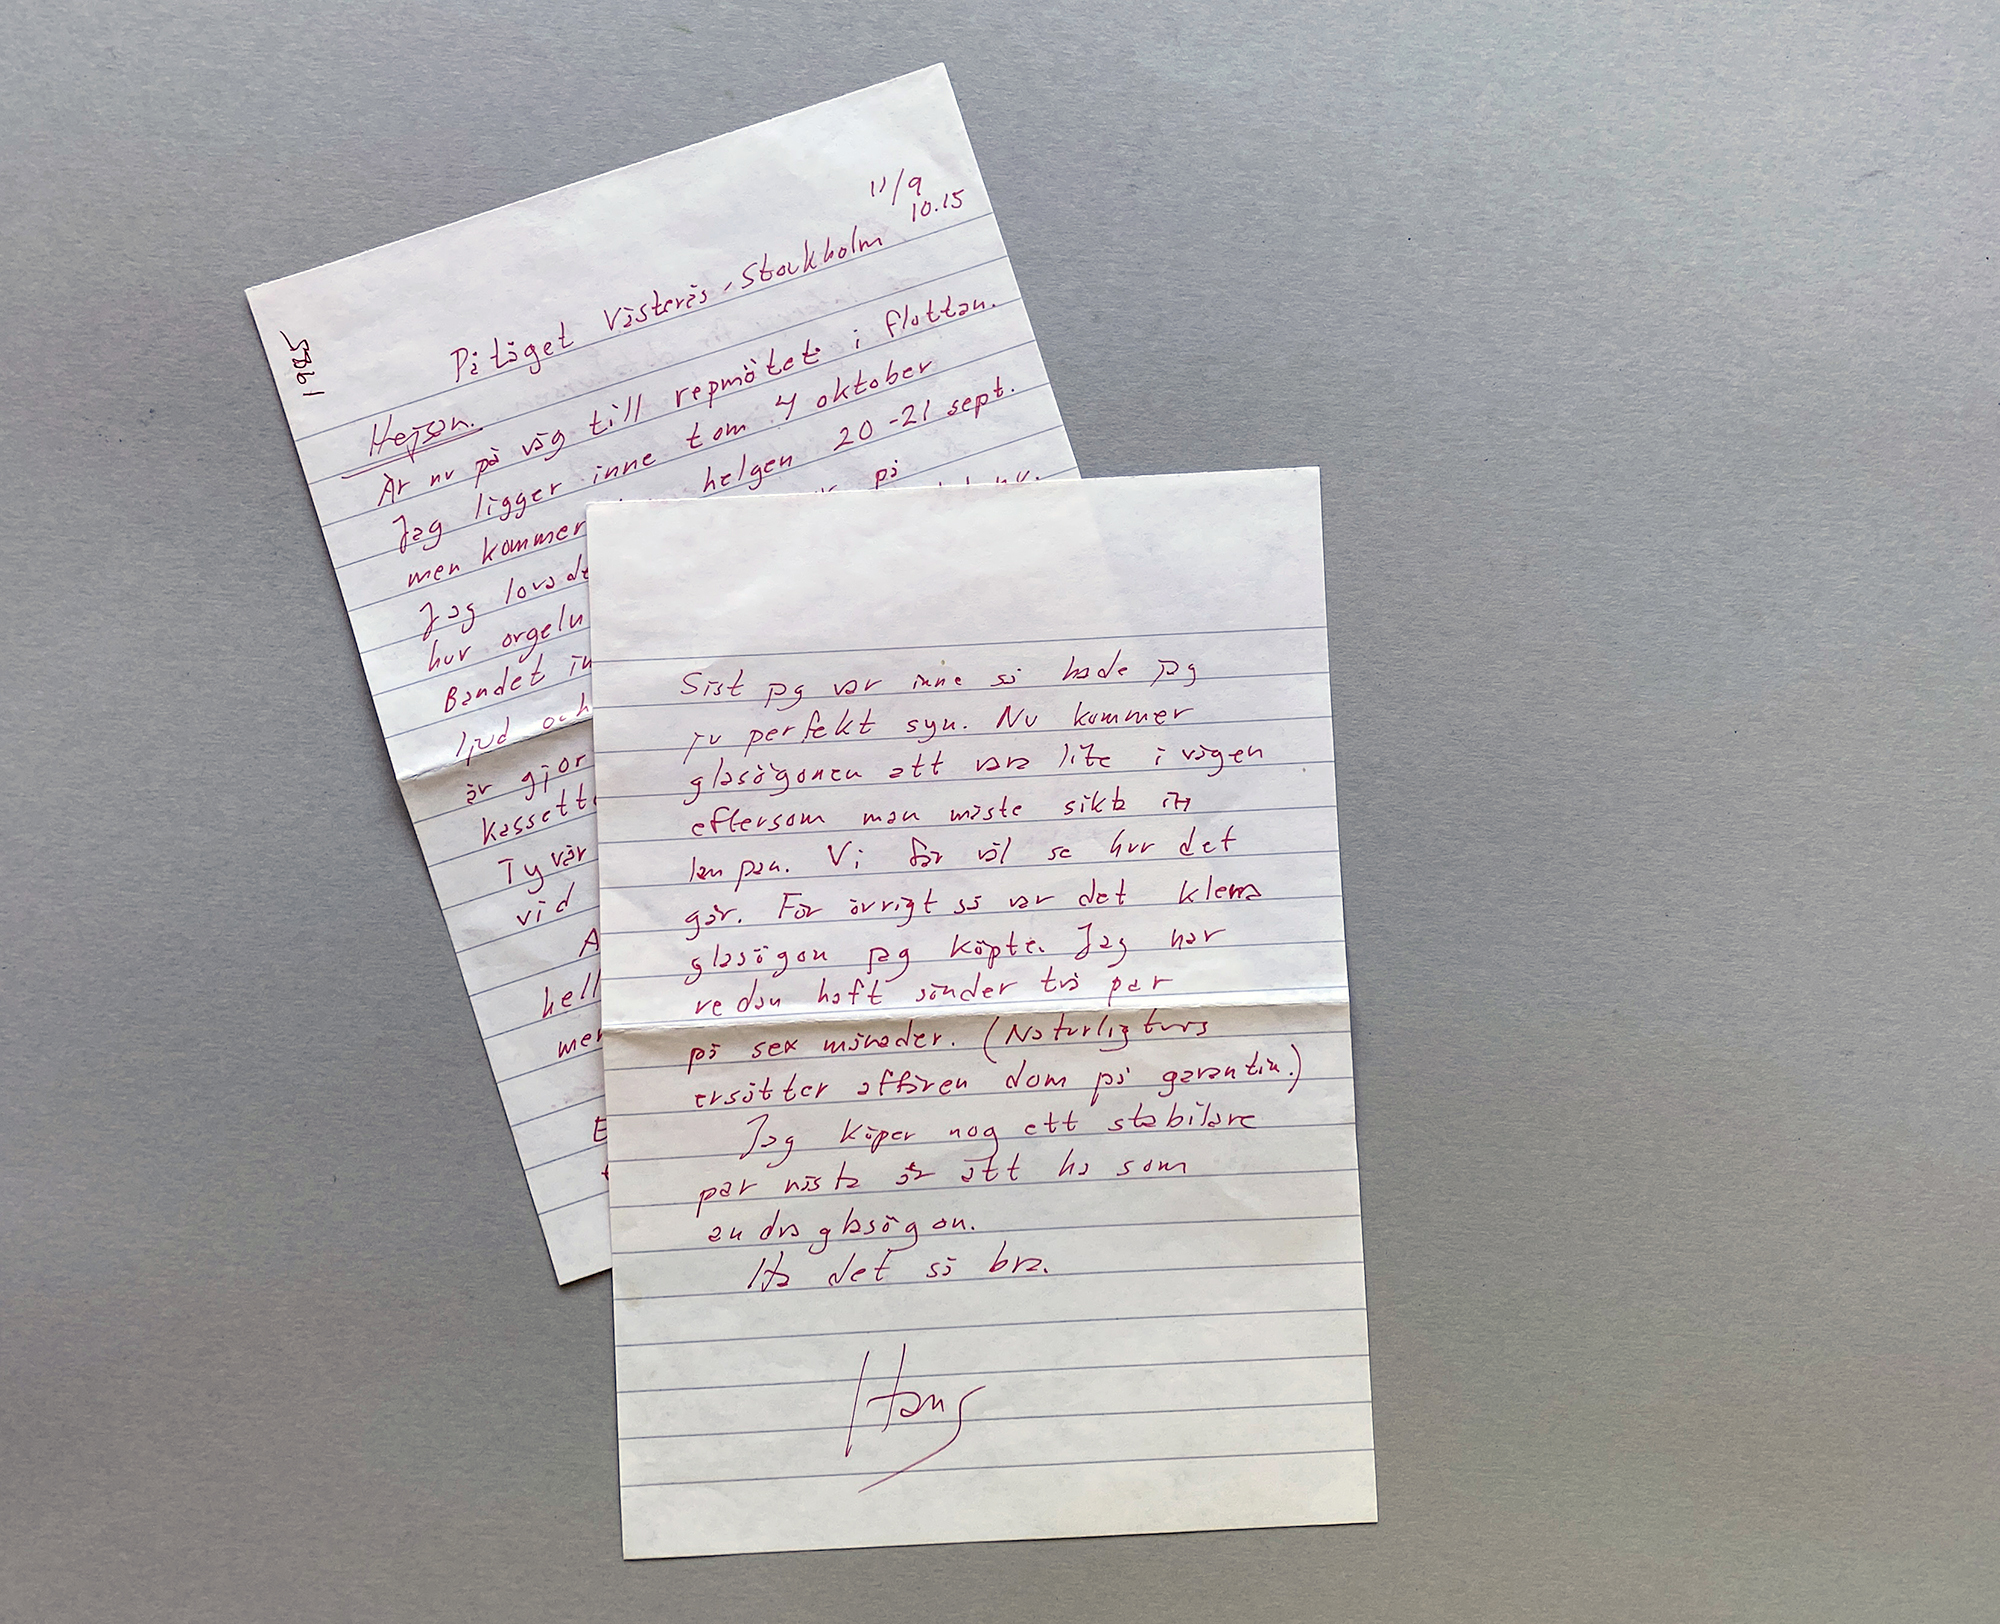 11/9
10.15
På tåget Västerås-Stockholm
1985
Hejsan.
Är nu på väg till repmötet i flottan.
Jag ligger inne tom 4 oktober
men kommer helgen 20-21 sept.
Jag lovade på
hur orgeln
Bandet in
ljud och
är gjor
kassett
Tyvär
vid
A
hell
mer
E
t
Sist jag var inne så hade jag
ju perfekt syn. Nu kommer
glasögonen att vara lite i vägen
eftersom man måste sikta in
lampan. Vi får väl se hur det
går. För övrigt så var det klena
glasögon jag köpte. Jag har
redan haft sönder två par
på sex månader. (Naturligtvis
ersätter affären dom på garantin.)
Jag köper nog ett stabilare
par nästa år att ha som
andra glasögon.
Ha det så bra.
Hans